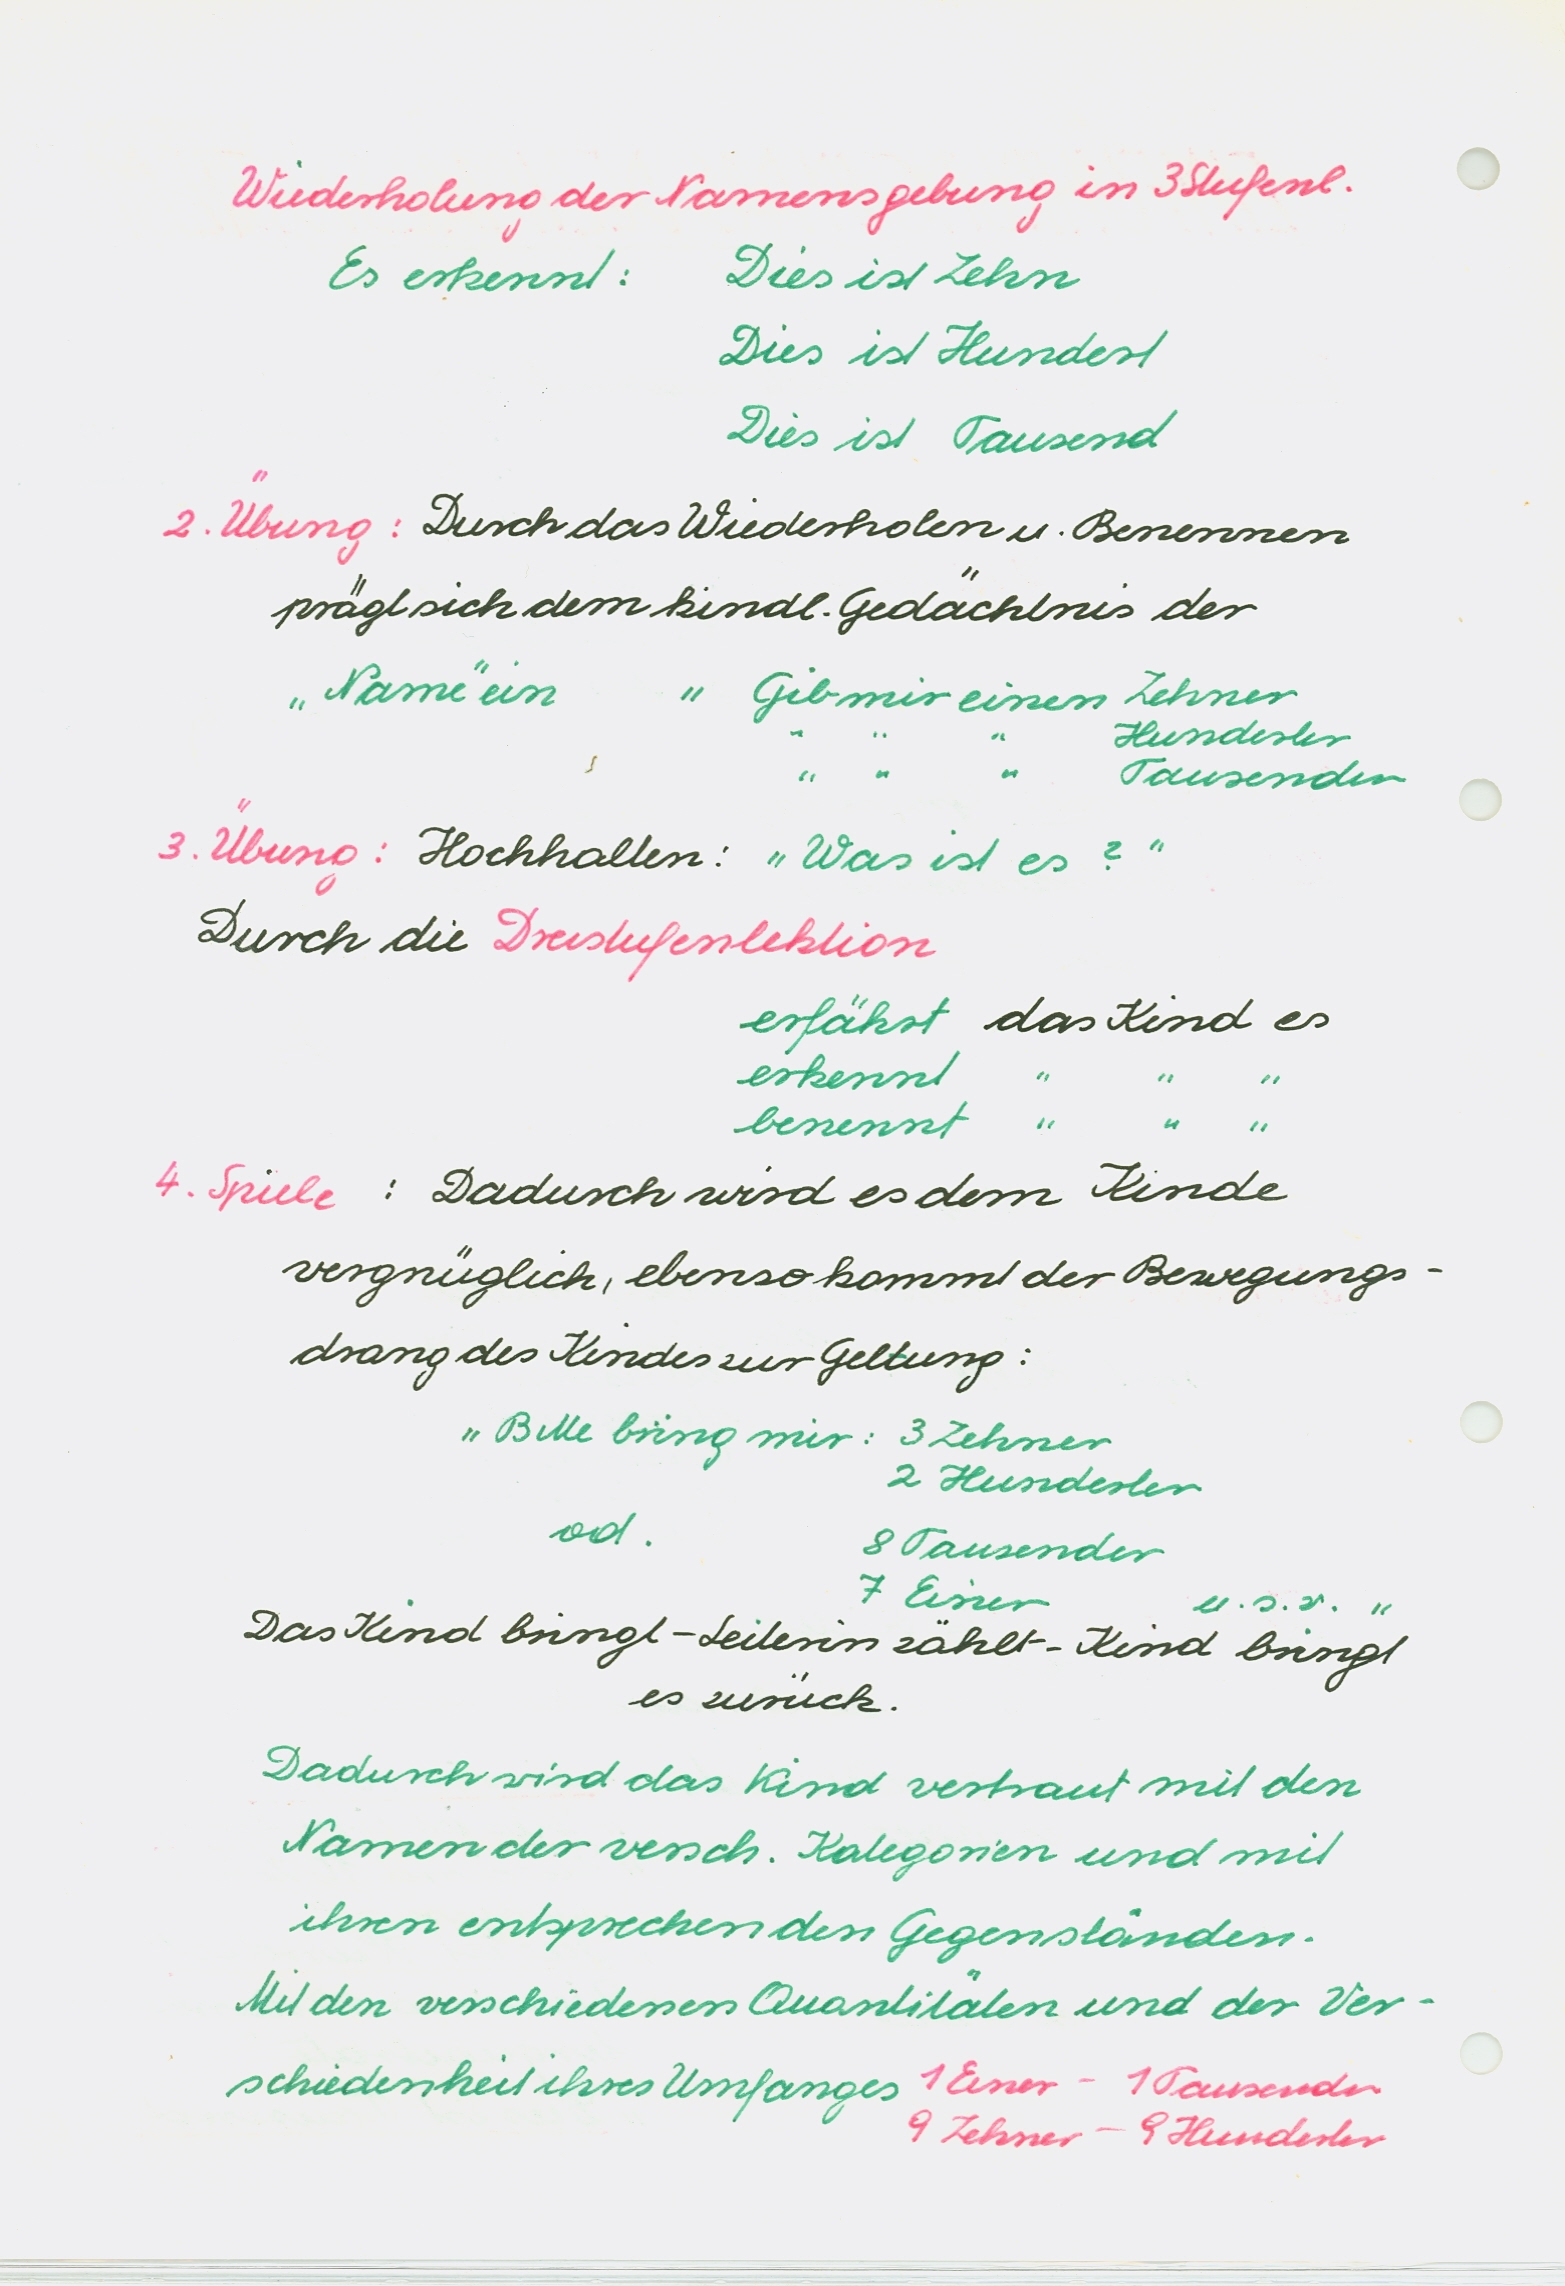 Wiederholung der Namensgebung in 3Stufenl.
Es erkennt: Dies ist Zehn
Dies ist Hundert
Dies ist Tausend
2. Übung: Durch das Wiederholen u. Benennen
prägt sich dem kindl. Gedächtnis der
„Name“ ein „ Gib mir einen Zehner
" " " Hunderter
" " " Tausender
3. Übung: Hochhalten: „Was ist es?“
Durch die Dreistufenlektion
erfährt das Kind es
erkennt " " "
benennt " " "
4. Spiele : Dadurch wird es dem Kinde
vergnüglich, ebenso kommt der Bewegungs-
drang des Kindes zur Geltung:
„Bitte bring mir: 3 Zehner
2 Hunderter
od. 8 Tausender
7 Einer u.s.w. “
Das Kind bringt - Leiterin zählt - Kind bringt
es zurück.
Dadurch wird das Kind vertraut mit den
Namen der versch. Kategorien und mit
ihren entsprechenden Gegenständen.
Mit den verschiedenen Quantitäten und der Ver-
schiedenheit ihres Umfanges 1 Einer - 1 Tausender
9 Zehner - 9 Hunderter